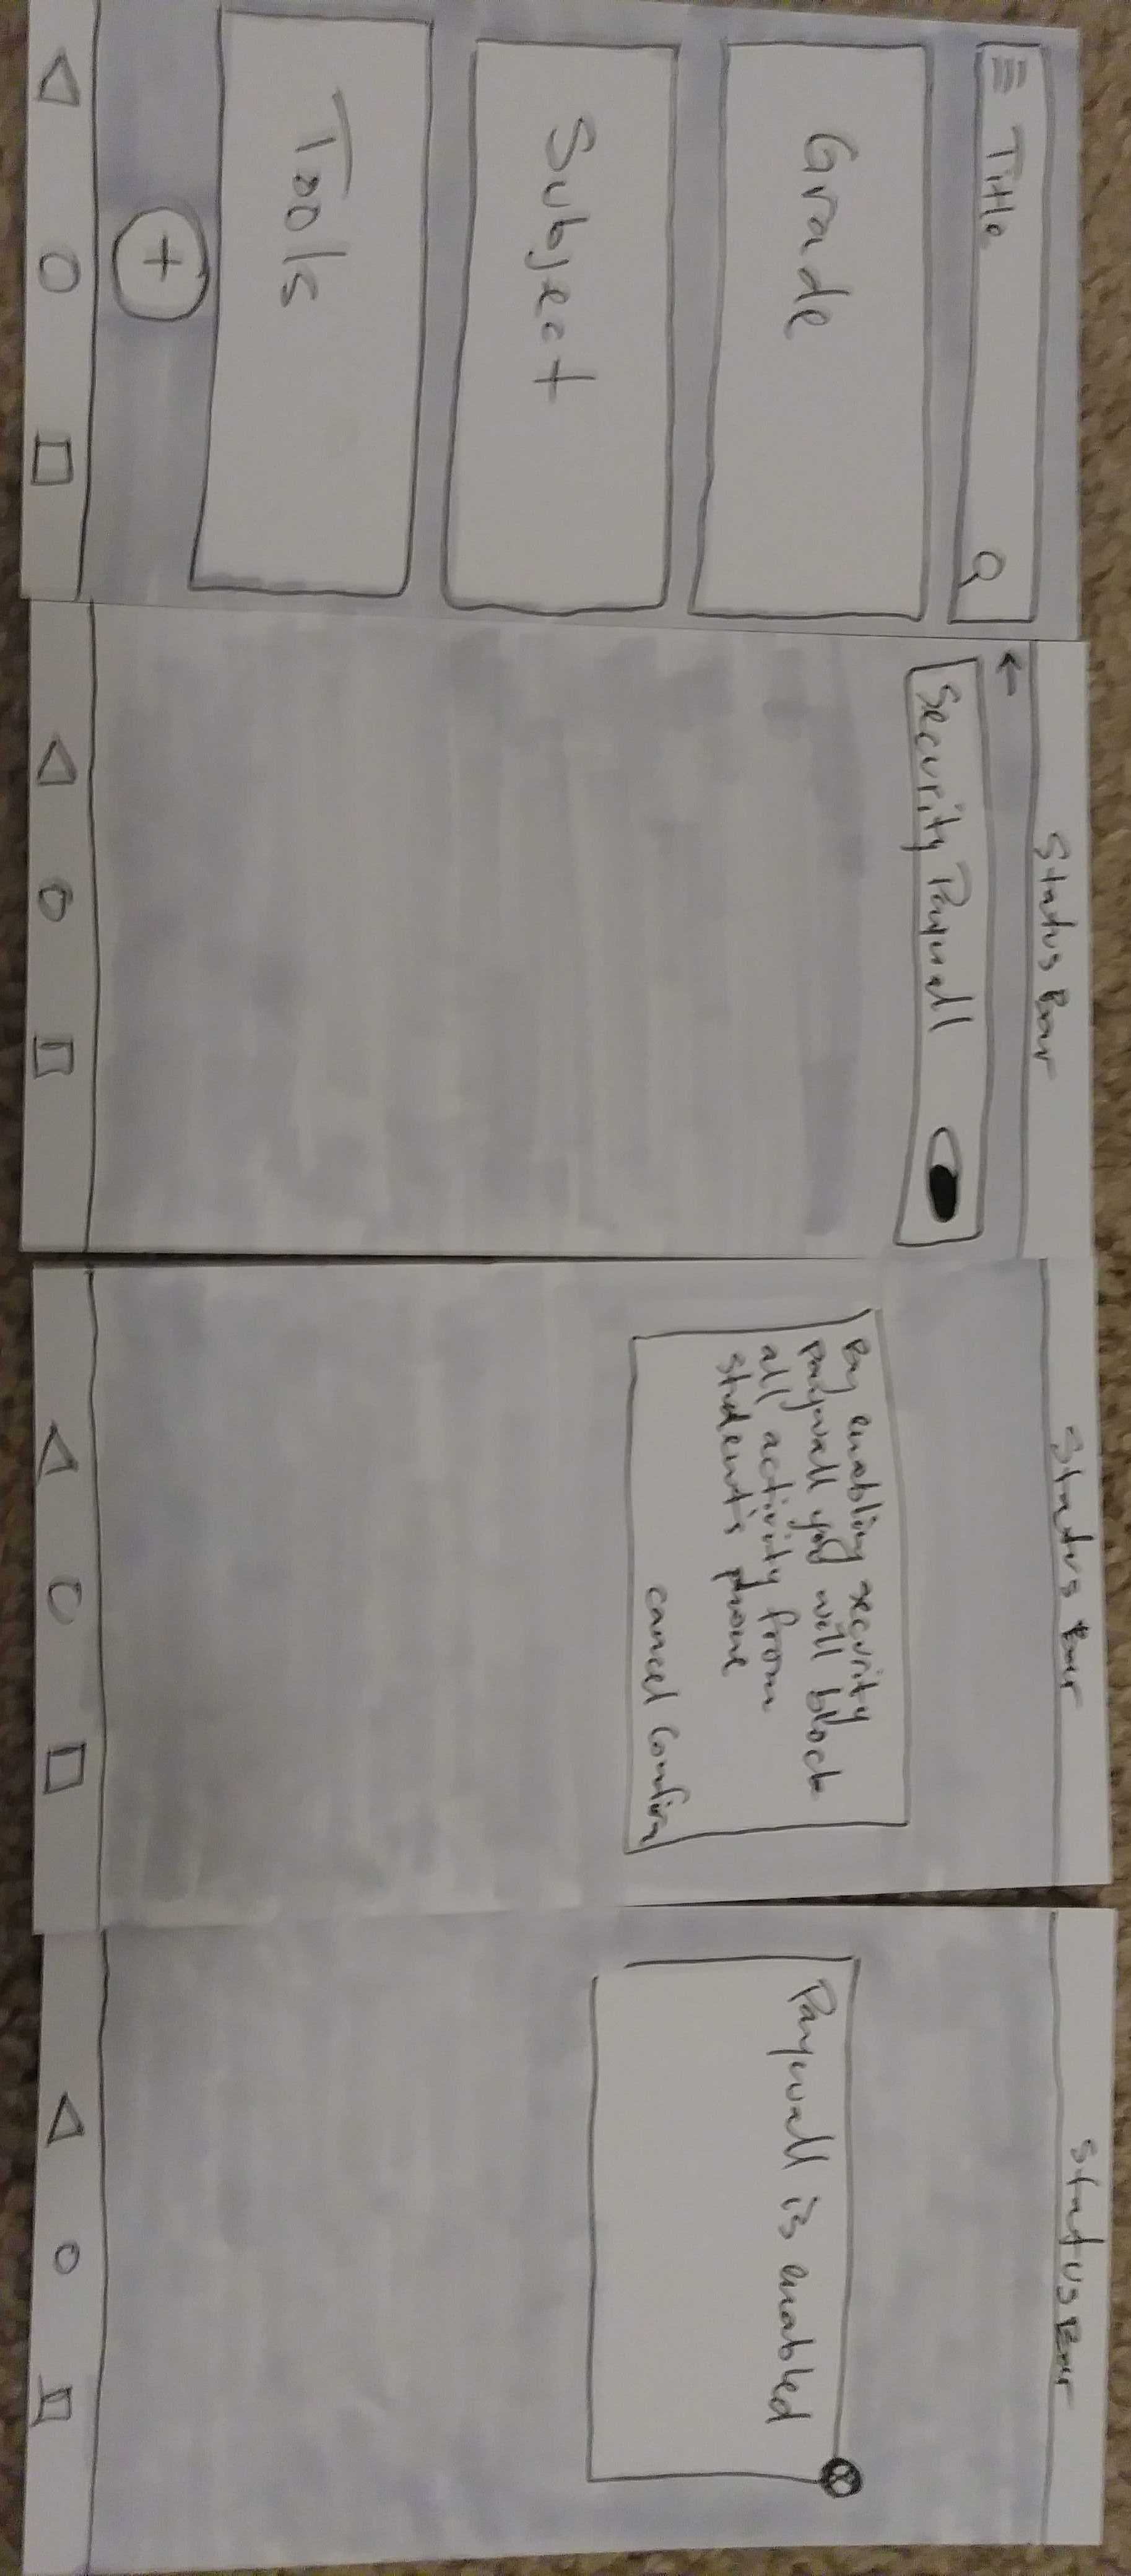 Title
Grade
Subject
Tools
+
Status Bar
Security Paywall
Status Bar
By enabling security
paywall you will block
all activity from
student's phone
cancel Confirm
Status Bar
X
Paywall is enabled